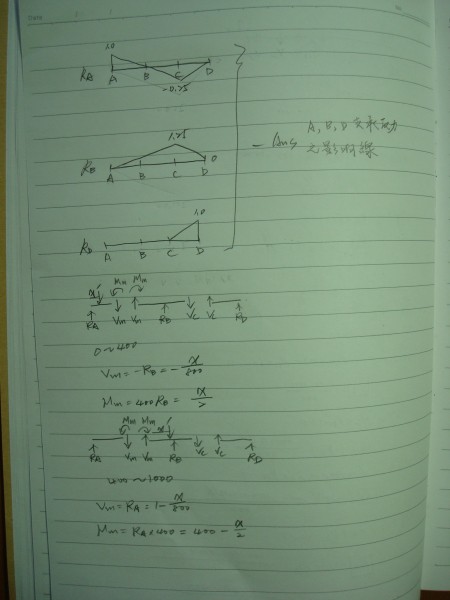 1.0
RA
A B C D
-0.25
1.25
RB
A B C D
0
1.0
RD
A B C D
Ans A, B, D 支承反力
之影响線
x Mm Mm
RA Vm Vm RB Vc Vc RD
0~400
Vm = -RB = -x/800
Mm = 400RB = x/2
Mm Mm x
RA Vm Vm RB Vc Vc RD
400~1000
Vm = RA = 1 - x/800
Mm = RA×400 = 400 - x/2